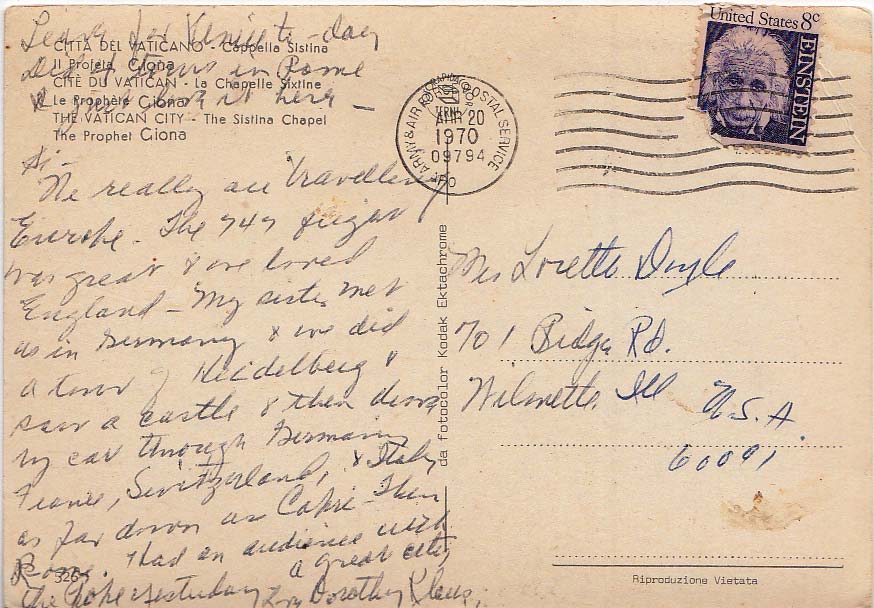 Leave for Venice to-day
Did 4 tours in Rome
it here —
CITTÀ DEL VATICANO - Cappella Sistina
Il Profeta Giona
CITÉ DU VATICAN - La Chapelle Sixtine
Le Prophète Giona
THE VATICAN CITY - The Sistina Chapel
The Prophet Giona
Hi -
We really are travelling
Europe. The 747 
was great & we loved
England - My sister met
us in Germany & we did
a tour of Heidelberg &
saw a castle & then drove
by car through Germany,
France, Switzerland, & Italy
as far down as Capri - Then
Rome. Had an audience with
the Pope yesterday
a great city
Dorothy Klaus
3265
da fotocolor Kodak Ektachrome
ARMY & AIR FORCE POSTAL SERVICE
APR 20
1970
09794
APO
United States 8c
EINSTEIN
Mrs Loretta Doyle
701 Ridge Rd.
Wilmette, Ill U.S.A.
60091
Riproduzione Vietata